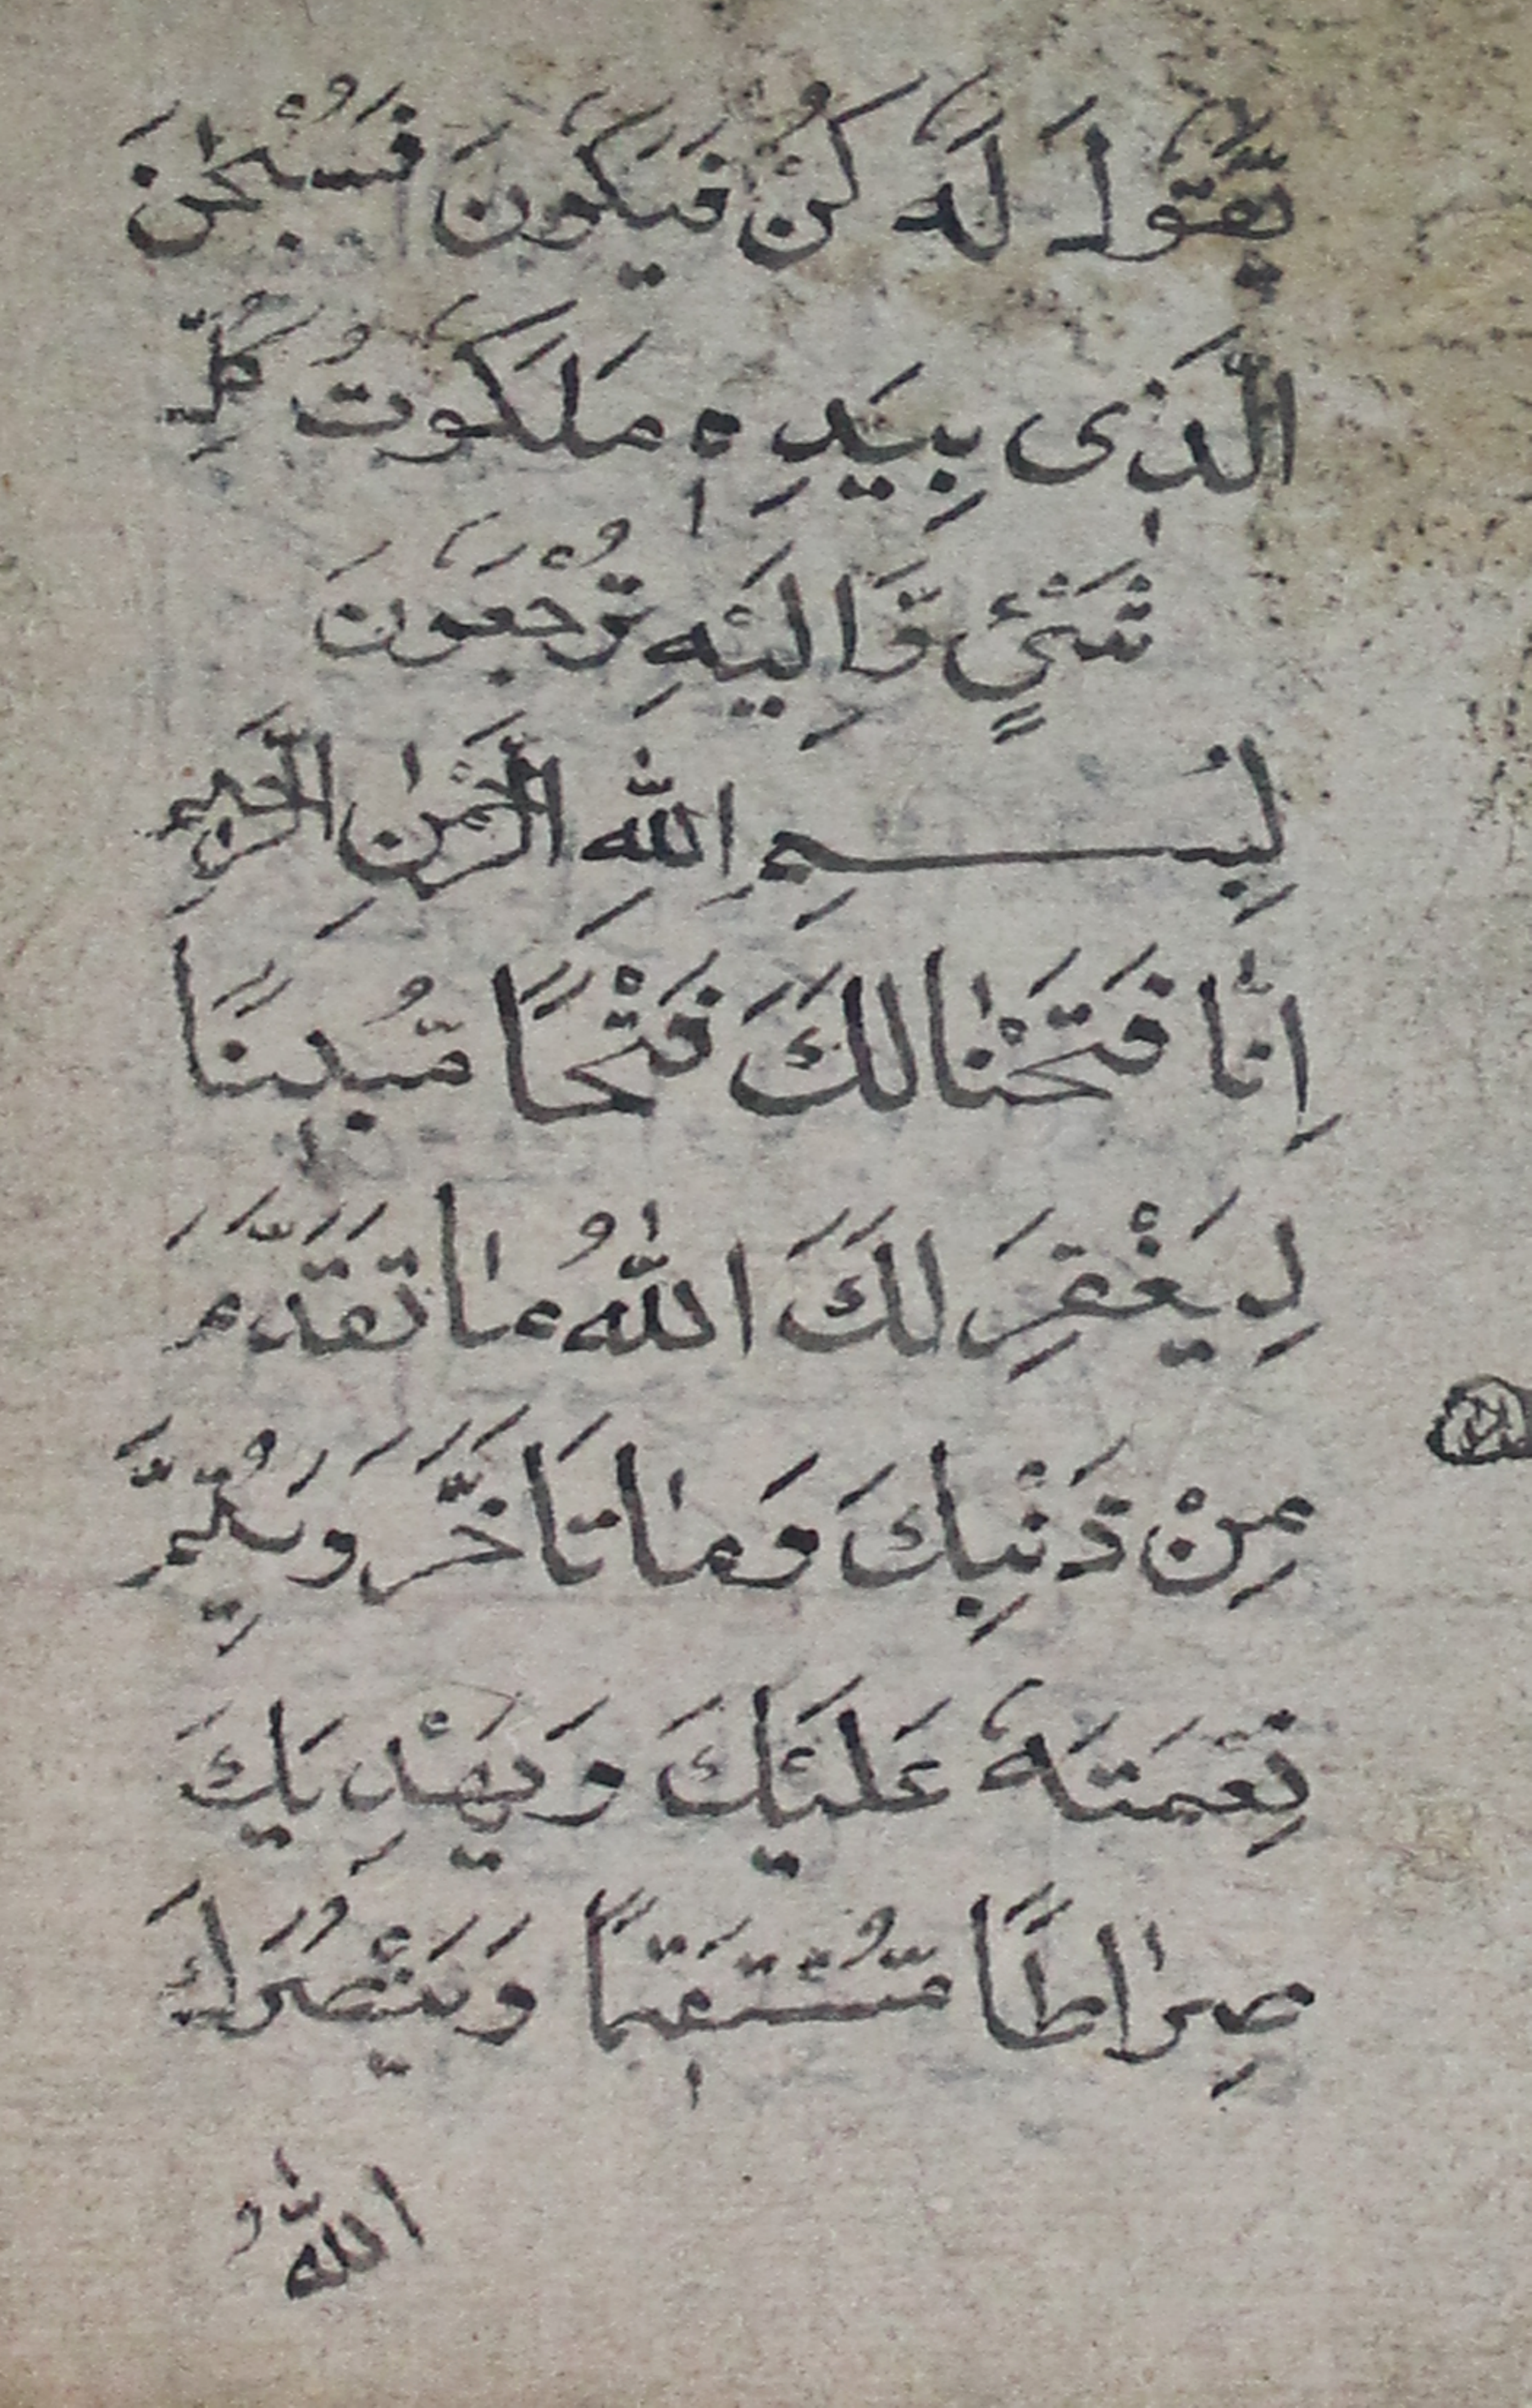 يَّقُولَ لَهٗ كُنْ فَيَكُوْنَ فَسُبْحٰنَ
الَّذٖى بِيَدِهٖ مَلَكُوتُ كُلِّ
شَىْئٍ وَّاِلَيْهِ تُرْجَعُوْنَ
بِسْمِ اللّٰهِ الرَّحْمٰنِ الرَّحِيْمِ
اِنّٰا فَتَحْنٰا لَكَ فَتْحًا مُّبٖينًا
لِيَغْفِرَ لَكَ اللّٰهُ مٰا تَقَدَّمَ
مِنْ ذَنْبِكَ وَمٰا تَاَخَّرَ وَيُتِمَّ
نِعْمَتَهٗ عَلَيْكَ وَيَهْدِيَكَ
صِرٰاطًا مُّسْتَقٖيمًا وَيَنْصُرَكَ
اللّٰهُ